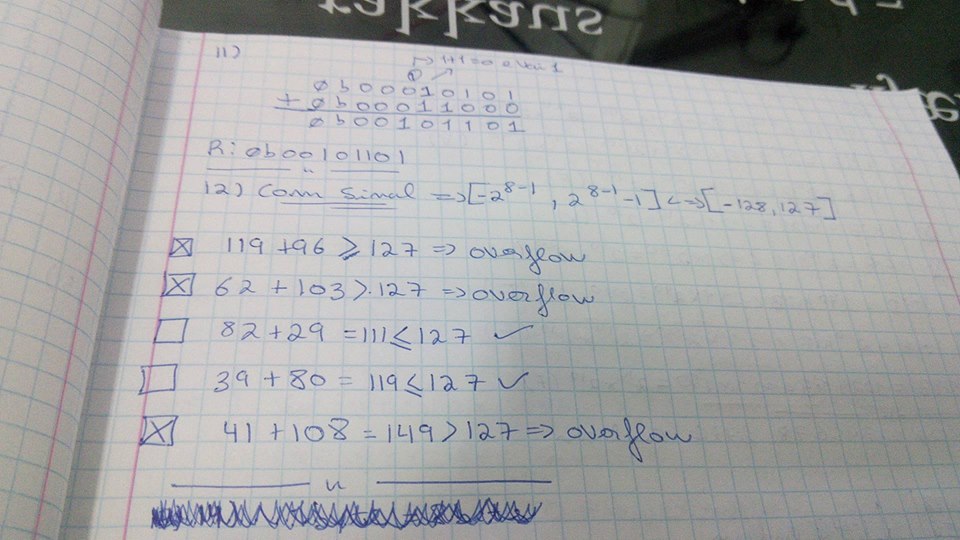 takkaus
11)
↦ 1+1=0 e vai 1
①
0b00010101
+ 0b00011000
0b00101101
R: 0b00101101
"
12) Com Sinal => [-2^8-1, 2^8-1 -1] <=> [-128, 127]
☒ 119 + 96 ⩾ 127 => overflow
☒ 62 + 103 > 127 => overflow
☐ 82 + 29 = 111 ≤ 127 ✓
☐ 39 + 80 = 119 ≤ 127 ✓
☒ 41 + 108 = 149 > 127 => overflow
"